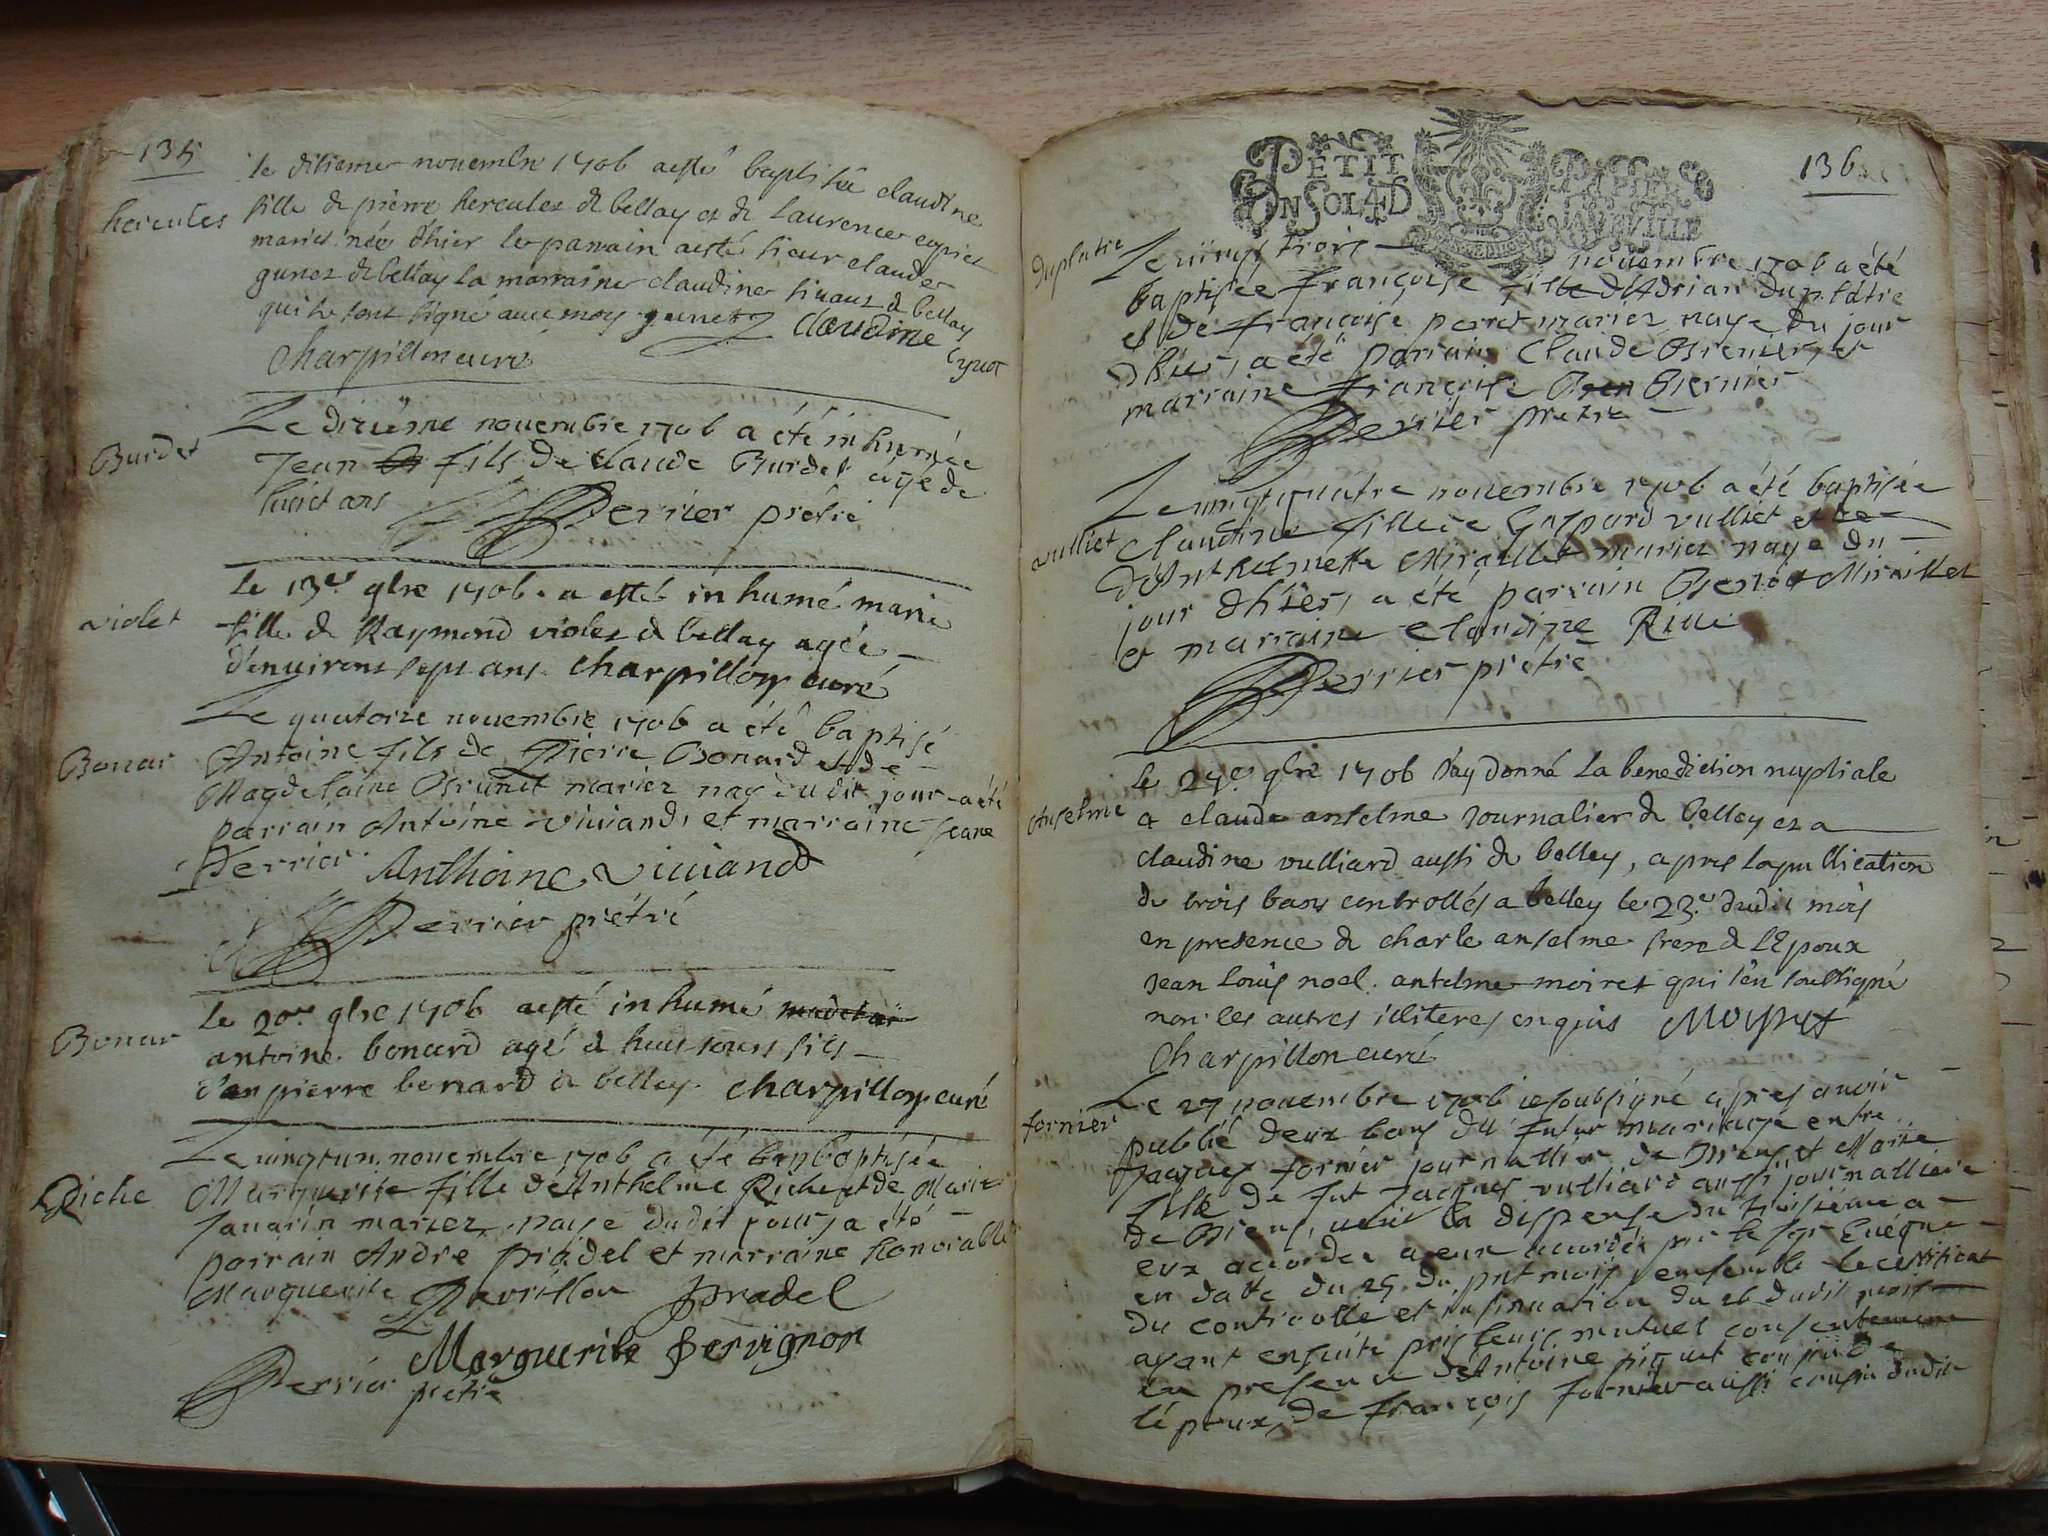 135
hercules
le disieme novembre 1706 a esté baptisée claudine
fille de pierre hercules de bellay et de laurence
mariés née d'hier le parrain a esté sieur claude
de bellay la marraine claudine sivaus de bellay
qui se sont signé avec moy claudine
charpillon curé
Burdet
Le diziéme novembre 1706 a été inhumée
Jean fils de claude Burdet âgé de
huict ans Perrier prétre
violet
le 13e 9bre 1706 a esté inhumé marie
fille de Raymond violet de bellay agée
d'environs sept ans charpillon curé
Bonar
Le quatorze novembre 1706 a été baptisé
Antoine fils de Pierre Bonard et de
Magdelaine Brunet mariez nay dudit jour a été
parrain Antoine viviand, et marraine Jeane
Perrier Anthoine viviand
Perrier prétre
Bonar
le 20e 9bre 1706 a esté inhumé
antoine bonard agé de huit jours fils
pierre bonard de belley charpillon curé
Riche
Le vingtun novembre 1706 a été baptisée
Marguerite fille d'Anthelme Riche et de Marie
Janarin mariez naye dudit jour, a été
parrain André pradel et marraine honorable
Marguerite Revrillon pradel
Marguerite
Perrier prétre
136
PETIT PAPIER
UN SOL 4 D LA VILLE
duplatre
Le vingt trois novembre 1706 a été
baptisée françoise fille d'Adrian duplâtre
et de françoise perret mariez naye du jour
d'hier, a été parrain Claude Brenier, et
marraine françoise Bernier
Perrier prétre
vulliet
Le vingt quatre novembre 1706 a été baptisée
Claudine fille de Gaspard vulliet et de
d'Anthelmette Miraillet mariez naye du
jour d'hier, a été parrain Benoet Miraillet
et marraine Claudine Rive
Perrier prétre
Anselme
Le 27e 9bre 1706 j'ay donné la benediction nuptiale
a claude anselme journalier de belley et a
claudine vulliard aussi de belley, apres la publication
de trois bans controllés a belley le 23e dudit mois
en presence de charle anselme frere de l'Epoux
Jean Louis noel antelme moiret qui s'en soussigné
non les autres illiteres enquis Moyret
Charpillon curé
fornier
Le 27 novembre 1706 ie soubsigné apres avoir
publié deux bans du futur mariage entre
Jaques fornier journallier de Brens et Marie
fille de fut Jacques vulliard aussi journalliere
de Brens, veüe la dispense du troisiéme a
eux accordée a eux accordée par le sgr Evéque
en datte du 25 du pnt mois, ensemble le certificat
du controolle et insinuation du 26 dudit mois
ayant ensuite pris leurs mutuel consentement
en presence d'Antoine piquet cousin de
l'époux, de françois fornier aussi cousin dudit